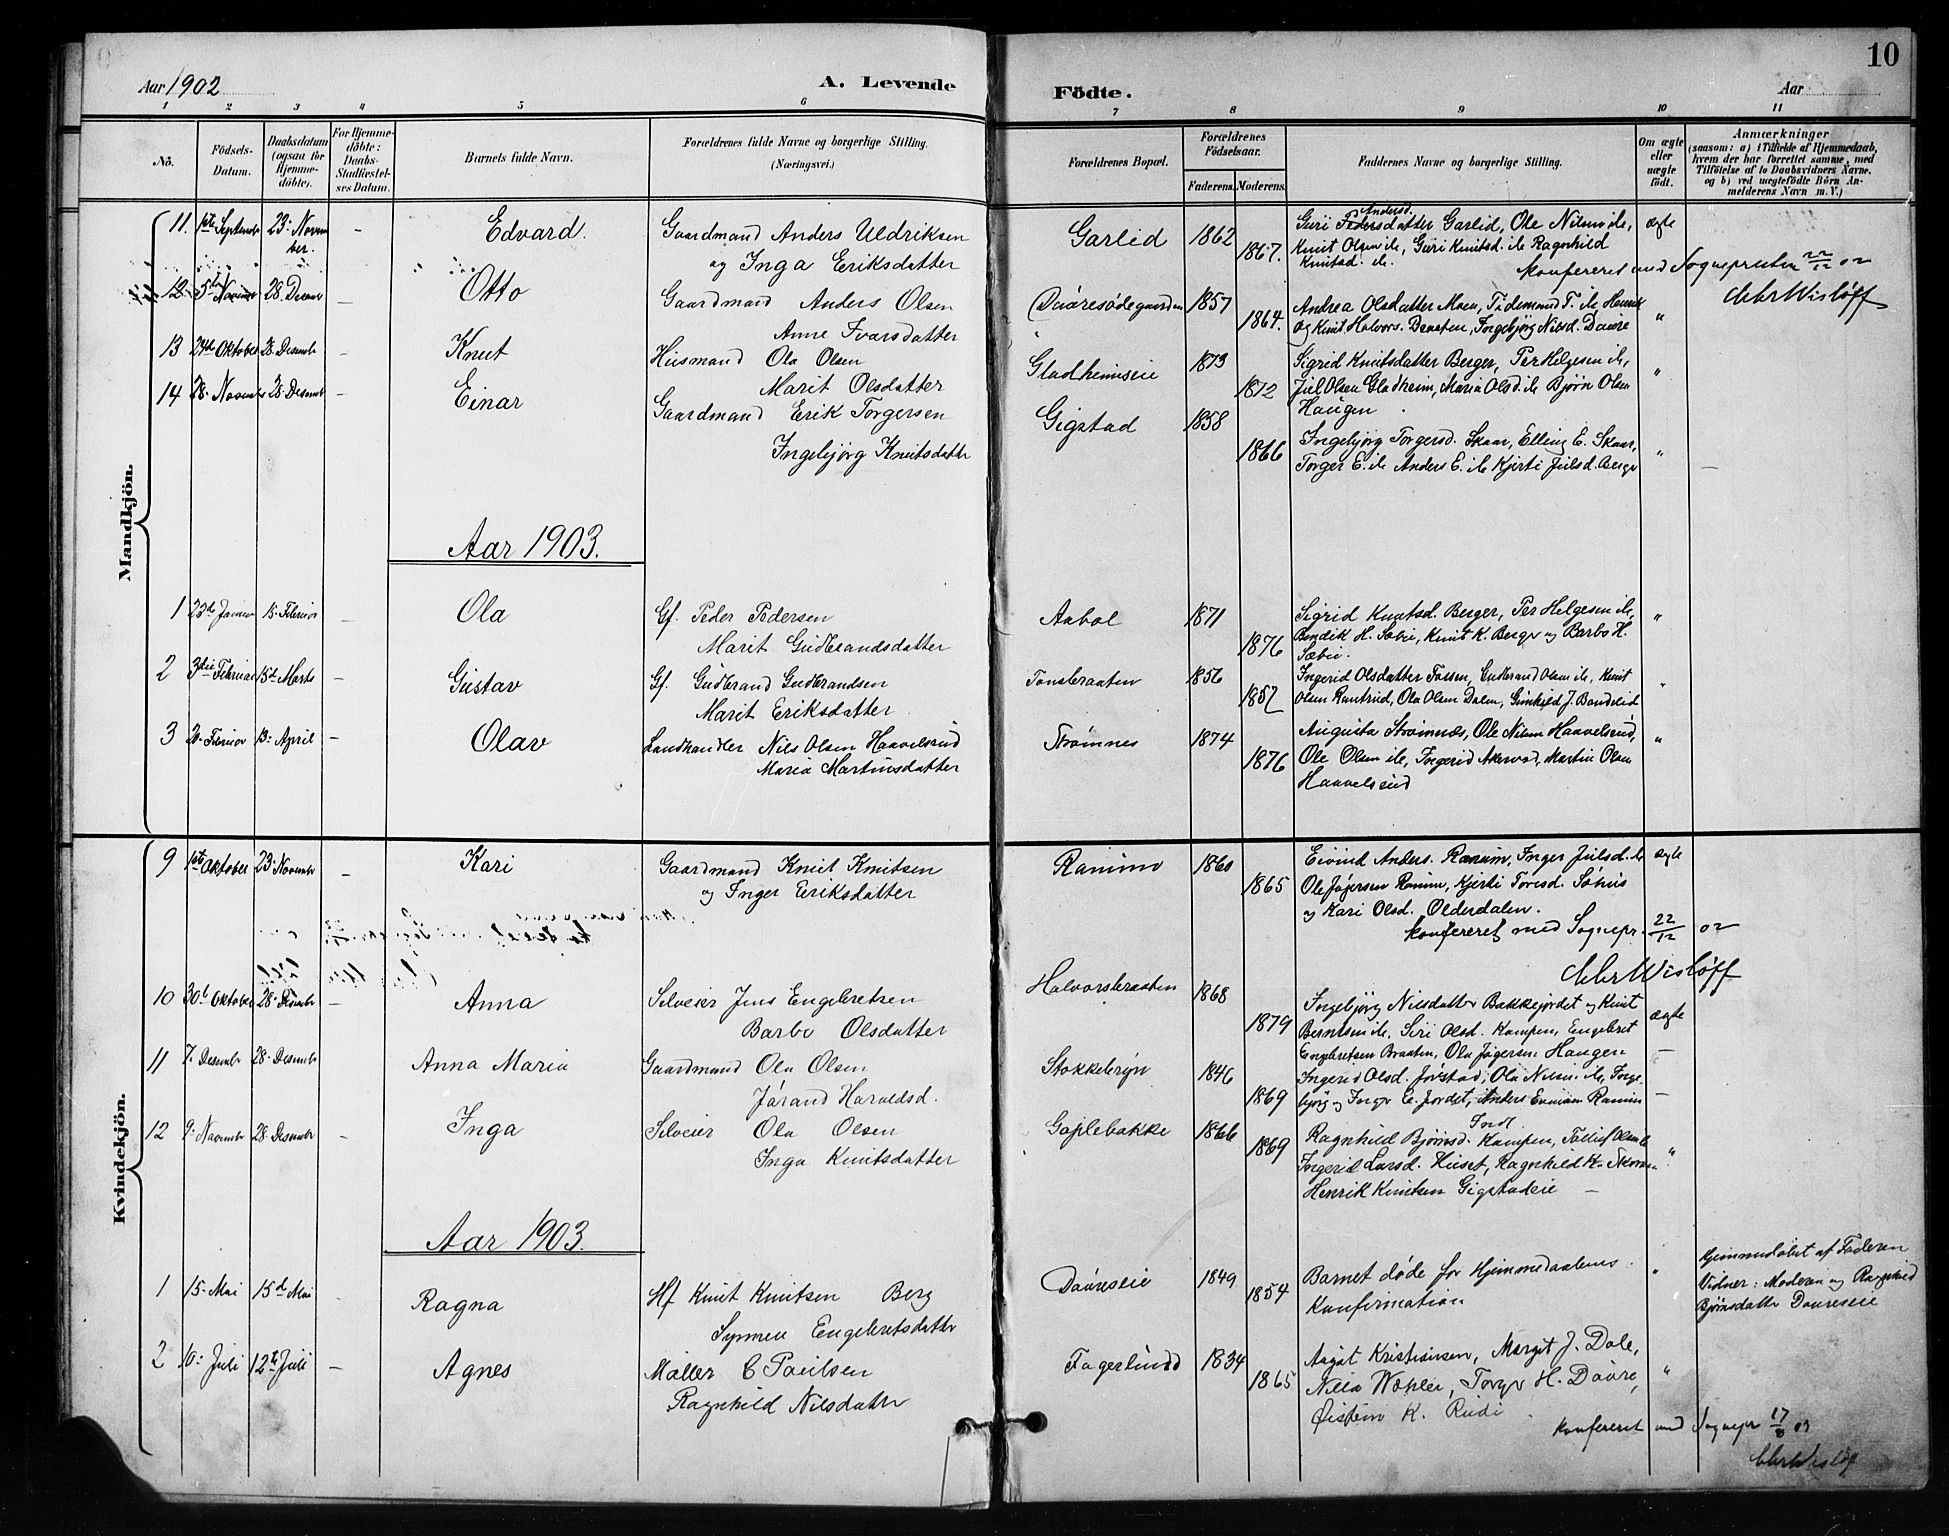 10
Aar 1902
A. Levende
Födte.
Aar
1 2 3 4 5 6 7 8 9 10 11
Nô.
Födsels-Datum.
Daabsdatum (ogsaa for Hjemme-döbte).
For Hjemme-döbte: Daabs-Stadfæstel-ses Datum.
Barnets fulde Navn.
Forældrenes fulde Navne og borgerlige Stilling. (Næringsvei.)
Forældrenes Bopæl.
Forældrenes Födselsaar.
Faderens.
Moderens.
Faddernes Navne og borgerlige Stilling.
Om ægte eller uægte födt.
Anmærkninger
(saasom: a) i Tilfælde af Hjemmedaab, hvem der har forrettet samme, med Tilföielse af to Daabsvidners Navne, og b) ved uægtefödte Börn An-melderens Navn m. V.)
Mandkjön.
11. 1ste September 23. November. - Edvard. Gaardmand Anders Uldriksen
og Inga Eriksdatter
Garlid 1862 1867. Andersd.
Guri Pedersdatter Garlid, Ole Nilsen ile, ægte
Knut Olsen ile, Guri Knutsd. ile Ragnhild
Knutsd. ile.
konfereret med Sognepresten 22/12 02
Chr Wisløff
12. 5te November 28 December - Otto Gaardmand Anders Olsen
Anne Ivarsdatter
1857 1864. Andrea Olsdatter Moen, Tidemand T. ile Henrik
og Knut Halvors. Braaten, Ingebjørg Nilsd. Daure "
13 24de Oktober 28 Desembr - Knut Husmand Ola Olsen
Marit Olsdatter
Gladheimseie 1873 1872 Sigrid Knutsdatter Berger, Per Helgesen ile, "
Juul Olsen Gladheim, Maria Olsd. ile Bjørn Olsen
Haugen.
14 28. November 28 Desembr - Einar Gaardmand Erik Torgersen
Ingebjörg Knutsdatter
Gigstad 1858 1866 Ingebjörg Torgersd. Skaar, Elling E. Skaar,
Torger E. ile Anders E. ile Kjersti Juulsd. Berge "
Aar 1903.
1 23de Januar 15. Februar - Ola Gf. Peder Pedersen
Marit Gudbrandsdatter
Aabol 1871 1876 Sigrid Knutsd. Berger, Per Helgesen ile, "
Bendik H. Sæbu, Knut K. Berger og Barbo H.
Sæbu.
2 3die Februar 15d Marts - Gustav Gf. Gudbrand Gudbrandsen
Marit Eriksdatter
Tonsbraaten 1856 1857 Ingerid Olsdatter Fossen, Gudbrand Olsen ile, Knut
Olsen Rustrud, Ola Olsen Dalen, Gunhild J. Bandelid "
3 Februar 13. April - Olav Landhandler Nils Olsen Haavelsrud
Maria Martinsdatter
Strømnes 1874 1876 Augusta Strømnæs, Ole Nilsen Haavelsrud, "
Ole Olsen ile, Ingerid Akervod, Martin Olsen
Haavelsrud
Kvindekjön.
9 1ste Oktober 23. November - Kari Gaardmand Knut Knutsen
og Inger Eriksdatter
Ranum 1860 1865 Eivind Anders. Ranum, Inger Juulsd. ile ægte
Ole Jøgersen Ranum, Kjersti Toresd.
og Kari Olsd. Olderdalen.
konfereret med Sognepr. 22/12 02
Chr Wisløff
10 30t Oktober 28. Desembr - Anna Selveier Jens Engebretsen
Barbo Olsdatter
Halvorsbraaten 1868 1879 Ingebjørg Nilsdatter Bakkejordet og Knut
Berntsen ile, Siri Olsd. Kampen, Engebret ægte
Engebretsen Braaten, Ola Jøgersen Haugen
11 7. Desembr 28. Desembr Anna Maria Gaardmand Ola Olsen
Jørand Harvoldsd.
Stokkebryn 1846 1869 Ingerid Olsd. Jørstad, Ola Nilsen ile, Inge-
björg og Inger E. Jordet, Anders Evensen Ranum -
12 9. Novembr 28. Desembr - Inga Selveier Ola Olsen
Inga Knutsdatter
Goplebakke 1866 1869 Ragnhild Bjørnsd. Kampen, Tollef Olsen ile
Ingerid Larsd. Huset, Ragnhild K. "
Henrik Knutsen Gigstadeie -
Aar 1903.
1 15. Mai 15de Mai - Ragna Hf Knut Knutsen Berg
Synneve Engebretsdatter
Daureseie 1849 1854 Barnet døde før Hjemmedaabens. "
Konfirmation
Hjemmedøbt af Faderen
Vidner: Moderen og Ragnhild
Bjørnsdatter Daureseie
2 10. Juli 12te Juli - Agnes Møller C Paulsen
Ragnhild Nilsdatter
Fagerlund 1834 1865 Aagot Kristiansen, Margit J. Dale,
Nilla Wøhler, Torger H. Daure, "
Øistein K. Rudi.
konfereret med Sognepr 17/8 03
Chr Wisløf